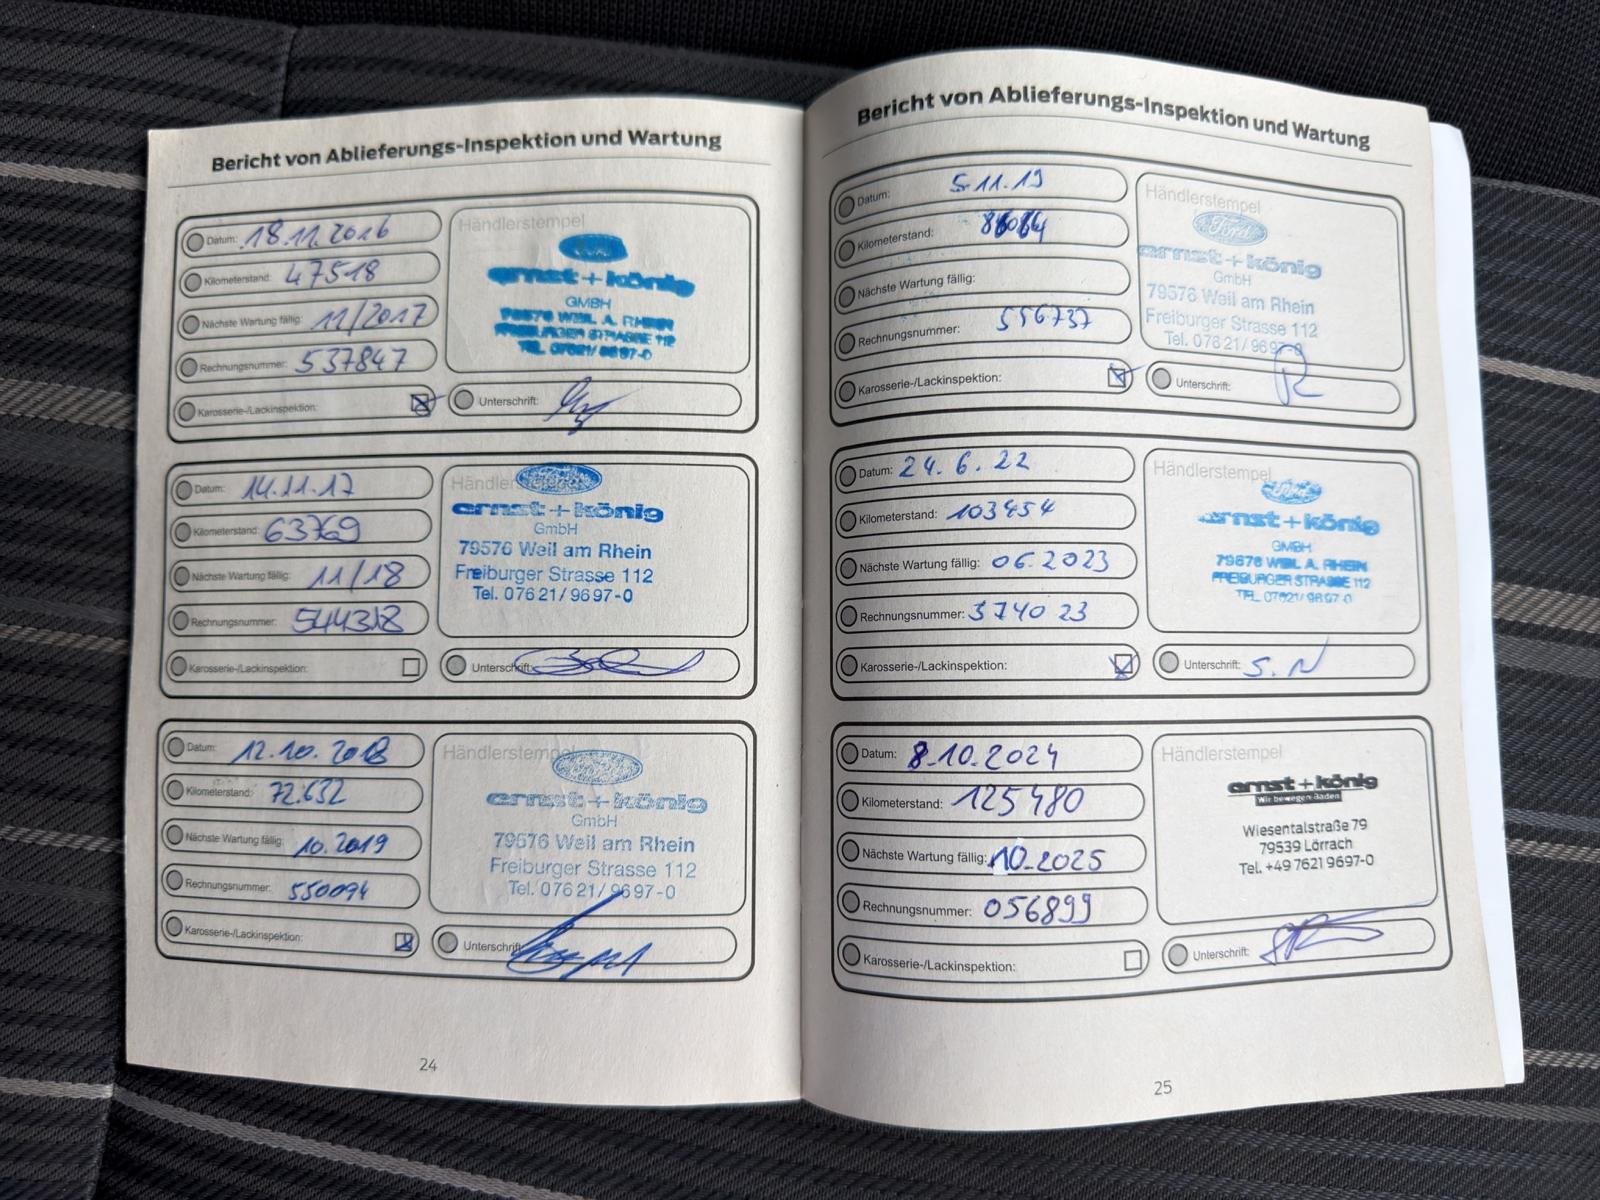 Bericht von Ablieferungs-Inspektion und Wartung
Datum: 18.11.2016
Kilometerstand: 47518
Nächste Wartung fällig: 11/2017
Rechnungsnummer: 537847
Karosserie-/Lackinspektion:
Händlerstempel
ernst+könig
GMBH
79576 WEIL A. RHEIN
FREIBURGER STRASSE 112
TEL. 07621/9697-0
Unterschrift:
Datum: 14.11.17
Kilometerstand: 63769
Nächste Wartung fällig: 11/18
Rechnungsnummer: 544318
Karosserie-/Lackinspektion:
ernst+könig
GmbH
79576 Weil am Rhein
Freiburger Strasse 112
Tel. 07621/9697-0
Unterschrift:
Datum: 12.10.2018
Kilometerstand: 72.632
Nächste Wartung fällig: 10.2019
Rechnungsnummer: 550094
Karosserie-/Lackinspektion:
Händlerstempel
ernst+könig
GmbH
79576 Weil am Rhein
Freiburger Strasse 112
Tel. 07621/9697-0
Unterschrift:
24
Bericht von Ablieferungs-Inspektion und Wartung
Datum: 5.11.19
Kilometerstand:
Nächste Wartung fällig:
Rechnungsnummer: 556737
Karosserie-/Lackinspektion:
Händlerstempel
Ford
ernst+könig
GmbH
79576 Weil am Rhein
Freiburger Strasse 112
Tel. 07621/9697-0
Unterschrift:
Datum: 24.6.22
Kilometerstand: 103454
Nächste Wartung fällig: 06.2023
Rechnungsnummer: 374023
Karosserie-/Lackinspektion:
Händlerstempel
Ford
ernst+könig
GMBH
79576 WEIL A. RHEIN
FREIBURGER STRASSE 112
TEL. 07621/9697-0
Unterschrift: S. N
Datum: 8.10.2024
Kilometerstand: 125480
Nächste Wartung fällig: 10.2025
Rechnungsnummer: 056899
Karosserie-/Lackinspektion:
Händlerstempel
ernst+könig
Wir bewegen Baden
Wiesentalstraße 79
79539 Lörrach
Tel. +49 7621 9697-0
Unterschrift:
25